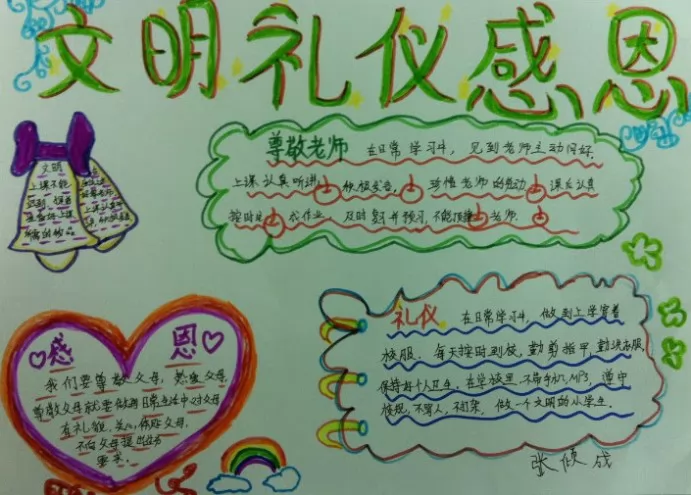 文明礼仪感恩
尊敬老师 在日常学习中, 见到老师主动问好.
上课认真听讲 积极发言, 珍惜老师的劳动 课后认真
按时完成作业, 及时复习并预习, 不能顶撞老师.
文明
上课不能
迟到
感恩
我们要尊敬父母, 热爱父母.
尊敬父母就要做到日常生活中对父母
有礼貌, 关心, 体贴父母,
不向父母提出
要求.
礼仪 在日常学习中, 做到上学穿着
校服. 每天按时到校, 勤剪指甲, 勤洗衣服,
保持好个人卫生. 在学校里, 不带手机, MP3, 遵守
校规, 不骂人, 不打架. 做一个文明的小学生.
张 成